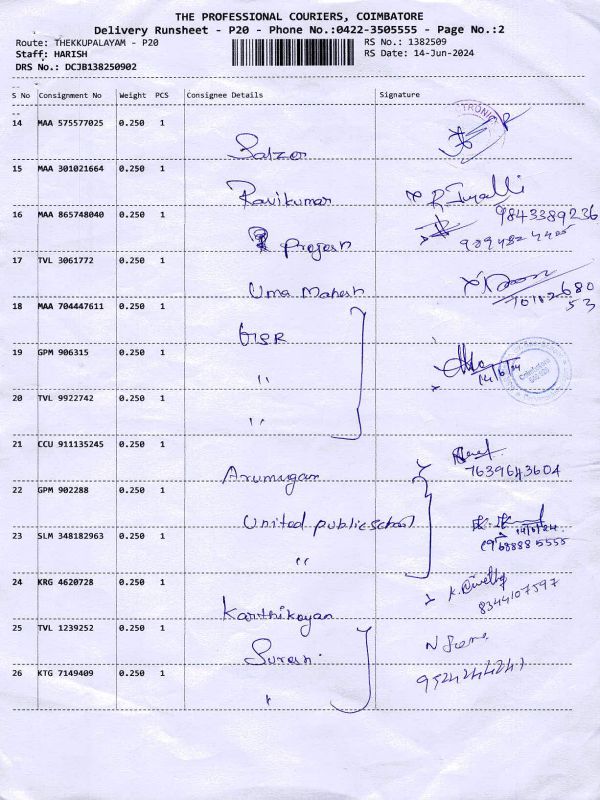 THE PROFESSIONAL COURIERS, COIMBATORE
Delivery Runsheet - P20 - Phone No.:0422-3505555 - Page No.:2
Route: THEKKUPALAYAM - P20 RS No.: 1382509
Staff: HARISH RS Date: 14-Jun-2024
DRS No.: DCJB138250902
S No Consignment No Weight PCS Consignee Details Signature
14 MAA 575577025 0.250 1
Salzer
15 MAA 301021664 0.250 1
Ravikumar
16 MAA 865748040 0.250 1 9843389236
Progesh
17 TVL 3061772 0.250 1
Uma Mahesh
18 MAA 704447611 0.250 1
GISR
19 GPM 906315 0.250 1
" 14/6/24
20 TVL 9922742 0.250 1
"
21 CCU 911135245 0.250 1
Arumugam 7639643604
22 GPM 902288 0.250 1
United public school
23 SLM 348182963 0.250 1
"
24 KRG 4620728 0.250 1
Karthikeyan 8344107597
25 TVL 1239252 0.250 1
Suresh
26 KTG 7149409 0.250 1
"